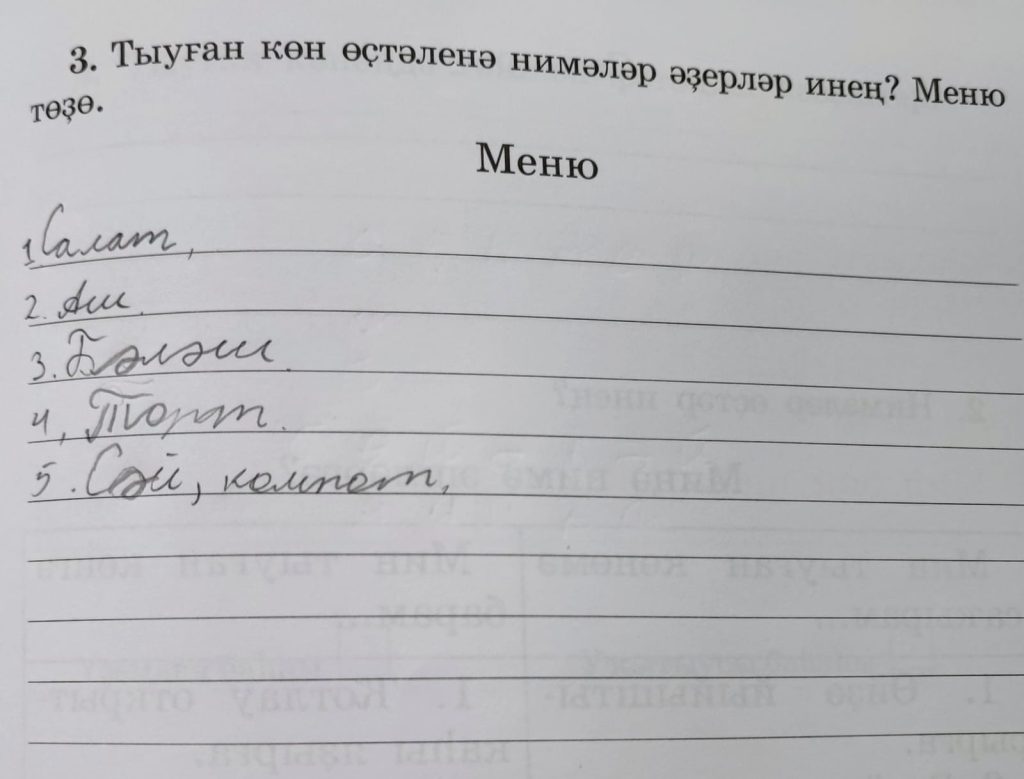 3. Тыуған көн өҫтәленә нимәләр әҙерләр инең? Меню
төҙө.
Меню
1 Салат,
2. Аш.
3. Бәләш.
4, Торт.
5. Сәй, компот,